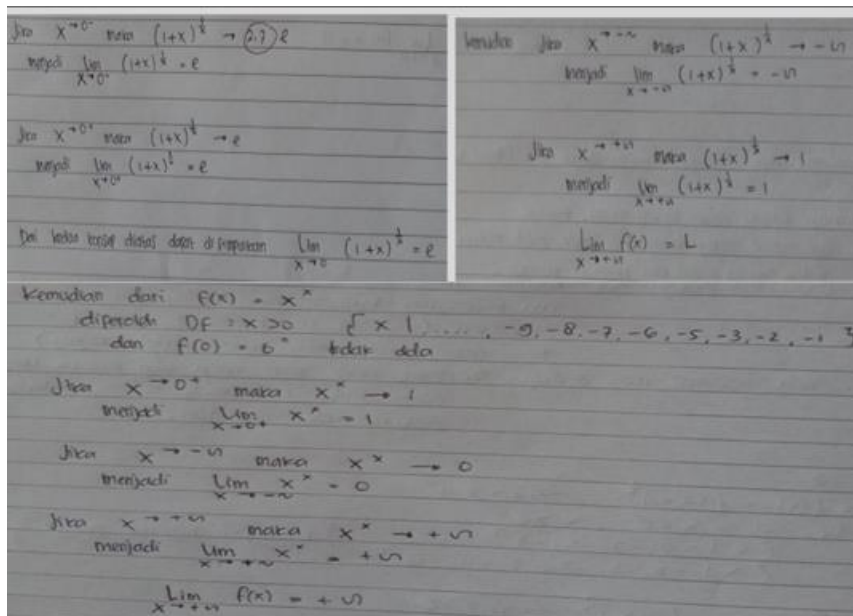 Jika x→0⁻ maka (1+x)^(1/x) → 2,7 e
menjadi lim x→0⁻ (1+x)^(1/x) = e
Jika x→0⁺ maka (1+x)^(1/x) → e
menjadi lim x→0⁺ (1+x)^(1/x) = e
Dari kedua konsep diatas dapat disimpulkan lim x→0 (1+x)^(1/x) = e
kemudian Jika x→-∞ maka (1+x)^(1/x) → -∞
menjadi lim x→-∞ (1+x)^(1/x) = -∞
Jika x→+∞ maka (1+x)^(1/x) → 1
menjadi lim x→+∞ (1+x)^(1/x) = 1
Lim x→+∞ f(x) = L
Kemudian dari f(x) = x^x
diperoleh DF = x>0 { x | ....., -9, -8, -7, -6, -5, -3, -2, -1 }
dan f(0) = 0° tidak ada
Jika x→0⁺ maka x^x → 1
menjadi Lim x→0⁺ x^x = 1
Jika x→-∞ maka x^x → 0
menjadi Lim x→-∞ x^x = 0
Jika x→+∞ maka x^x → +∞
menjadi Lim x→+∞ x^x = +∞
Lim x→+∞ f(x) = +∞